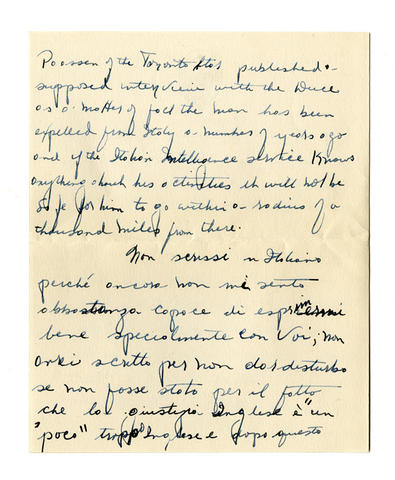 Paassen of the Toronto Star published a
supposed interview with the Duce
as a matter of fact the man has been
expelled from Italy a number of years ago
and if the Italian Intelligence service knows
anything about his activities it will not be
safe for him to go within a radius of a
thousand miles from there.
Non scrissi in Italiano
perché ancora non mi sento
abbastanza capace di esprimermi
bene specialmente con Voi; non
avrei scritto per non dar disturbo
se non fosse stato per il fatto
che la giustizia Inglese è "un
poco" troppo Inglese e dopo questo